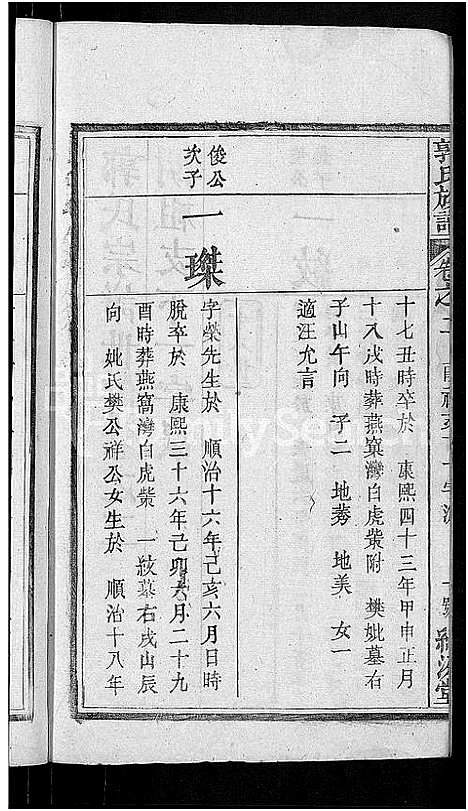 郭氏族譜
卷之二
十七丑時卒於　康熙四十三年甲申正月
十八戌時葬燕窠灣白虎𡶶附　樊妣墓右
子山午向　子二　地莠　地美　女一
適汪允言
俊公
次子
一璨
字榮先生於　順治十六年己亥六月日時
脫卒於　康熙三十六年己卯六月二十九
酉時葬燕窩灣白虎𡶶　一紋墓右戌山辰
向　姚氏樊公祥公女生於　順治十八年